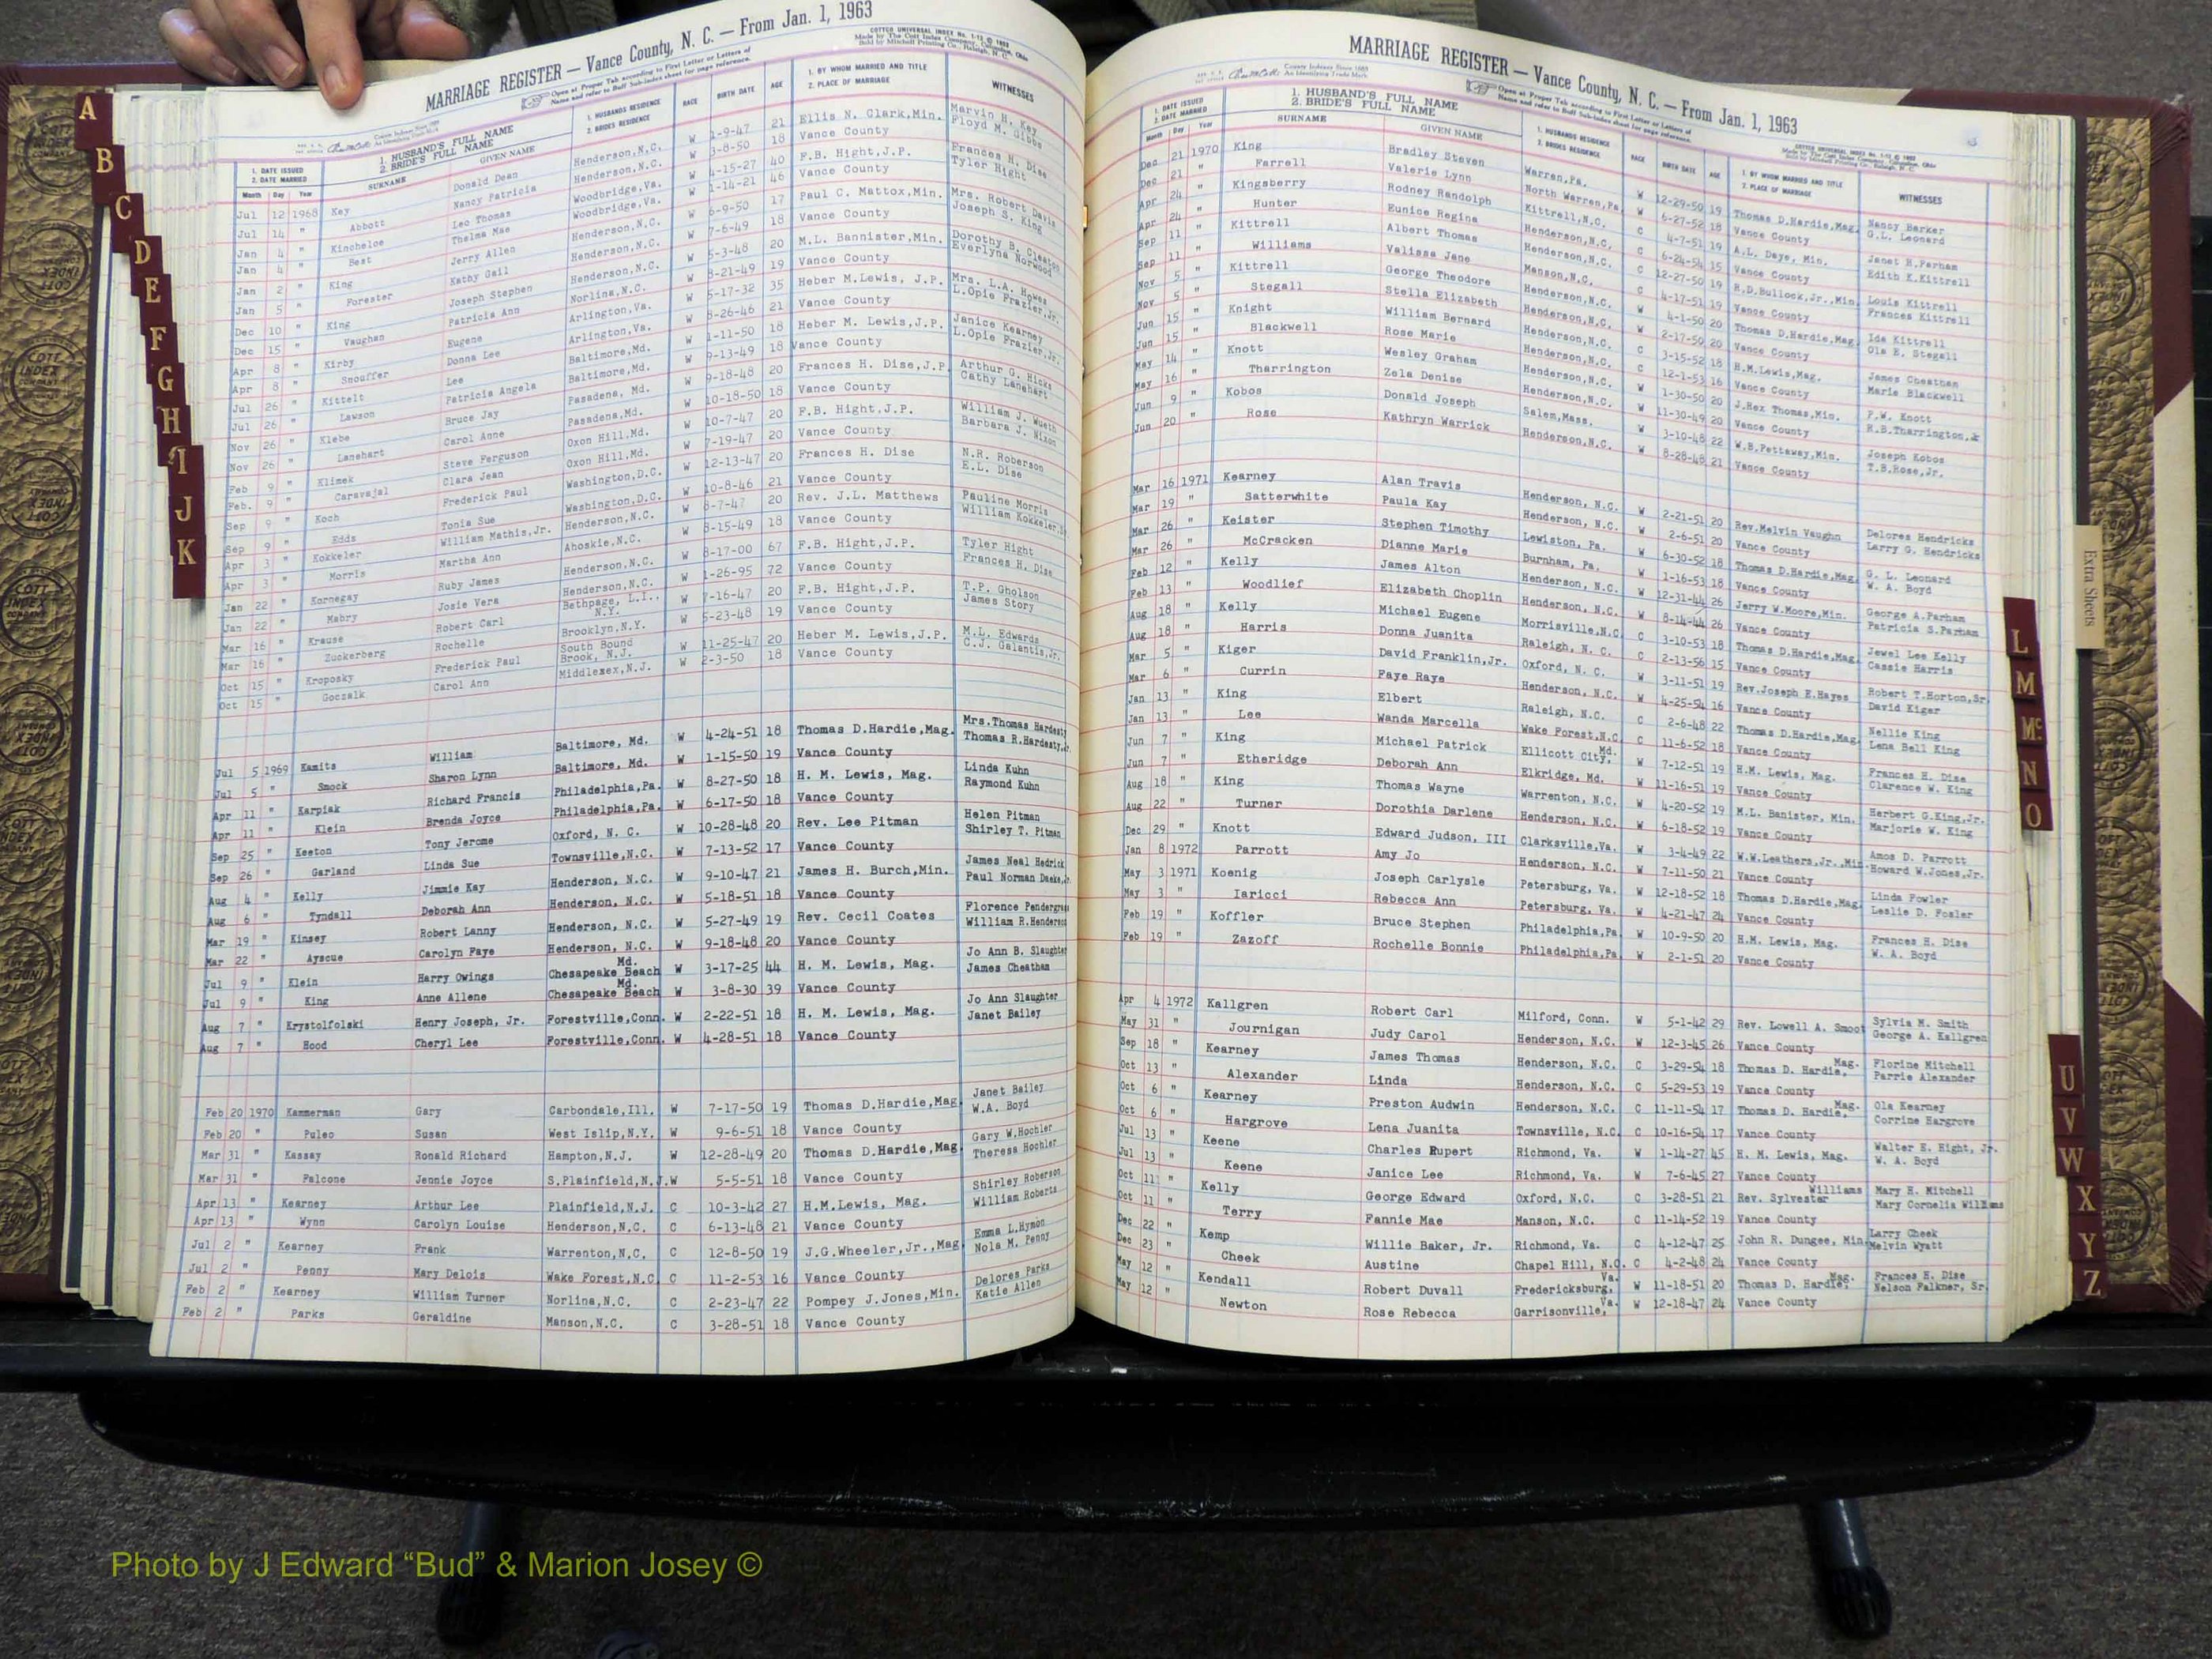 MARRIAGE REGISTER — Vance County, N. C. — From Jan. 1, 1963
COTTER UNIVERSAL INDEX
1. DATE ISSUED
2. DATE MARRIED
1. HUSBAND'S FULL NAME
2. BRIDE'S FULL NAME
1. HUSBANDS RESIDENCE
2. BRIDES RESIDENCE
RACE BIRTH DATE AGE
1. BY WHOM MARRIED AND TITLE
2. PLACE OF MARRIAGE
WITNESSES
Month Day Year SURNAME GIVEN NAME
Jul 12 1968 Key Donald Dean Henderson,N.C. W 1-9-47 21 Ellis N. Clark,Min. Marvin H. Key
Jul 14 " Abbott Nancy Patricia Henderson,N.C. W 3-8-50 18 Vance County Floyd M. Gibbs
Jan 4 " Kincheloe Leo Thomas Woodbridge,Va. W 4-15-27 40 F.B. Hight,J.P. Frances H. Dise
Jan 4 " Best Thelma Mae Woodbridge,Va. W 1-14-21 46 Vance County Tyler Hight
Jan 2 " King Jerry Allen Henderson,N.C. W 6-9-50 17 Paul C. Mattox,Min. Mrs. Robert Davis
Jan 5 " Forester Kathy Gail Henderson,N.C. W 7-6-49 18 Vance County Joseph S. King
Dec 10 " King Joseph Stephen Henderson,N.C. W 5-3-48 20 M.L. Bannister,Min. Dorothy B. Cleaton
Dec 15 " Vaughan Patricia Ann Norlina,N.C. W 8-21-49 19 Vance County Everlyna Norwood
Apr 8 " Kirby Eugene Arlington,Va. W 5-17-32 35 Heber M.Lewis, J.P. Mrs. L.A. Howes
Apr 8 " Snouffer Donna Lee Arlington,Va. W 8-26-46 21 Vance County L.Opie Frazier,Jr.
Jul 26 " Kittelt Lee Baltimore,Md. W 1-11-50 18 Heber M. Lewis,J.P. Janice Kearney
Jul 26 " Lawson Patricia Angela Baltimore,Md. W 9-13-49 18 Vance County L.Opie Frazier,Jr.
Nov 26 " Klebe Bruce Jay Pasadena, Md. W 9-18-48 20 Frances H. Dise,J.P. Arthur G. Hicks
Nov 26 " Lanehart Carol Anne Pasadena,Md. W 10-18-50 18 Vance County Cathy Lanehart
Feb 9 " Klimek Steve Ferguson Oxon Hill,Md. W 10-7-47 20 F.B. Hight,J.P. William J. Wueth
Feb. 9 " Caravajal Clara Jean Oxon Hill,Md. W 7-19-47 20 Vance County Barbara J. Nixon
Sep 9 " Koch Frederick Paul Washington,D.C. W 12-13-47 20 Frances H. Dise N.R. Roberson
Sep 9 " Edds Tonia Sue Washington,D.C. W 10-8-46 21 Vance County E.L. Dise
Apr 3 " Kokkeler William Mathis,Jr. Henderson,N.C. W 8-7-47 20 Rev. J.L. Matthews Pauline Morris
Apr 3 " Morris Martha Ann Ahoskie,N.C. W 8-15-49 18 Vance County William Kokkeler,Sr.
Jan 22 " Kornegay Ruby James Henderson,N.C. W 8-17-00 67 F.B. Hight,J.P. Tyler Hight
Jan 22 " Mabry Josie Vera Henderson,N.C. W 1-26-95 72 Vance County Frances H. Dise
Mar 16 " Krause Robert Carl Bethpage, L.I., N.Y. W 7-16-47 20 F.B. Hight,J.P. T.P. Gholson
Mar 16 " Zuckerberg Rochelle Brooklyn,N.Y. W 5-23-48 19 Vance County James Story
Oct 15 " Kroposky Frederick Paul South Bound Brook, N.J. W 11-25-47 20 Heber M. Lewis,J.P. M.L. Edwards
Oct 15 " Goczalk Carol Ann Middlesex,N.J. W 2-3-50 18 Vance County C.J. Galantis,Jr.
Jul 5 1969 Kamits William Baltimore, Md. W 4-24-51 18 Thomas D.Hardie,Mag. Mrs.Thomas Hardesty
Jul 5 " Smock Sharon Lynn Baltimore, Md. W 1-15-50 19 Vance County Thomas R.Hardesty,Jr.
Apr 11 " Karpiak Richard Francis Philadelphia,Pa. W 8-27-50 18 H. M. Lewis, Mag. Linda Kuhn
Apr 11 " Klein Brenda Joyce Philadelphia,Pa. W 6-17-50 18 Vance County Raymond Kuhn
Sep 25 " Keeton Tony Jerome Oxford, N. C. W 10-28-48 20 Rev. Lee Pitman Helen Pitman
Sep 26 " Garland Linda Sue Townsville,N.C. W 7-13-52 17 Vance County Shirley T. Pitman
Aug 4 " Kelly Jimmie Kay Henderson, N.C. W 9-10-47 21 James H. Burch,Min. James Neal Hedrick
Aug 6 " Tyndall Deborah Ann Henderson, N.C. W 5-18-51 18 Vance County Paul Norman Daeke,Jr.
Mar 19 " Kinsey Robert Lanny Henderson, N.C. W 5-27-49 19 Rev. Cecil Coates Florence Pendergrass
Mar 22 " Ayscue Carolyn Faye Henderson, N.C. W 9-18-48 20 Vance County William R.Henderson
Jul 9 " Klein Harry Owings Chesapeake Beach Md. W 3-17-25 44 H. M. Lewis, Mag. Jo Ann B. Slaughter
Jul 9 " King Anne Allene Chesapeake Beach Md. W 3-8-30 39 Vance County James Cheatham
Aug 7 " Krystolfolski Henry Joseph, Jr. Forestville,Conn. W 2-22-51 18 H. M. Lewis, Mag. Jo Ann Slaughter
Aug 7 " Hood Cheryl Lee Forestville,Conn. W 4-28-51 18 Vance County Janet Bailey
Feb 20 1970 Kammerman Gary Carbondale,Ill. W 7-17-50 19 Thomas D.Hardie,Mag Janet Bailey
Feb 20 " Puleo Susan West Islip,N.Y. W 9-6-51 18 Vance County W.A. Boyd
Mar 31 " Kassay Ronald Richard Hampton,N.J. W 12-28-49 20 Thomas D.Hardie,Mag Gary W.Hochler
Mar 31 " Falcone Jennie Joyce S.Plainfield,N.J. W 5-5-51 18 Vance County Theresa Hochler
Apr 13 " Kearney Arthur Lee Plainfield,N.J. C 10-3-42 27 H.M.Lewis, Mag. Shirley Roberson
Apr 13 " Wynn Carolyn Louise Henderson,N.C. C 6-13-48 21 Vance County William Roberts
Jul 2 " Kearney Frank Warrenton,N.C. C 12-8-50 19 J.G.Wheeler,Jr.,Mag Emma L.Hymon
Jul 2 " Penny Mary Delois Wake Forest,N.C. C 11-2-53 16 Vance County Nola M. Penny
Feb 2 " Kearney William Turner Norlina,N.C. C 2-23-47 22 Pompey J.Jones,Min. Delores Parks
Feb 2 " Parks Geraldine Manson,N.C. C 3-28-51 18 Vance County Katie Allen
MARRIAGE REGISTER — Vance County, N. C. — From Jan. 1, 1963
1. DATE ISSUED
2. DATE MARRIED
1. HUSBAND'S FULL NAME
2. BRIDE'S FULL NAME
1. HUSBANDS RESIDENCE
2. BRIDES RESIDENCE
RACE BIRTH DATE AGE
1. BY WHOM MARRIED AND TITLE
2. PLACE OF MARRIAGE
WITNESSES
Month Day Year SURNAME GIVEN NAME
Dec 21 1970 King Bradley Steven Warren,Pa. W 12-29-50 19 Thomas D.Hardie,Mag. Nancy Barker
Dec 21 " Farrell Valerie Lynn North Warren,Pa. W 6-27-52 18 Vance County G.L. Leonard
Apr 24 " Kingsberry Rodney Randolph Kittrell,N.C. C 4-7-51 19 A.L. Daye, Min. Janet H.Parham
Apr 24 " Hunter Eunice Regina Henderson,N.C. C 6-24-54 15 Vance County Edith K.Kittrell
Sep 11 " Kittrell Albert Thomas Henderson,N.C. C 12-27-50 19 R.D.Bullock,Jr.,Min Louis Kittrell
Sep 11 " Williams Valissa Jane Manson,N.C. C 4-17-51 19 Vance County Frances Kittrell
Nov 5 " Kittrell George Theodore Henderson,N.C. W 4-1-50 20 Thomas D.Hardie,Mag Ida Kittrell
Nov 5 " Stegall Stella Elizabeth Henderson,N.C. W 2-17-50 20 Vance County Ola E. Stegall
Jun 15 " Knight William Bernard Henderson,N.C. C 3-15-52 18 H.M.Lewis,Mag. James Cheatham
Jun 15 " Blackwell Rose Marie Henderson,N.C. C 12-1-53 16 Vance County Marie Blackwell
May 14 " Knott Wesley Graham Henderson,N.C. W 1-30-50 20 J.Rex Thomas,Min. P.W. Knott
May 16 " Tharrington Zela Denise Henderson,N.C. W 11-30-49 20 Vance County R.B.Tharrington,Jr
Jun 9 " Kobos Donald Joseph Salem,Mass. W 3-10-48 22 W.B.Pettaway,Min. Joseph Kobos
Jun 20 " Rose Kathryn Warrick Henderson,N.C. W 8-28-48 21 Vance County T.B.Rose,Jr.
Mar 16 1971 Kearney Alan Travis Henderson, N.C. W 2-21-51 20 Rev.Melvin Vaughn Delores Hendricks
Mar 19 " Satterwhite Paula Kay Henderson, N.C. W 2-6-51 20 Vance County Larry G. Hendricks
Mar 26 " Keister Stephen Timothy Lewiston, Pa. W 6-30-52 18 Thomas D.Hardie,Mag. G. L. Leonard
Mar 26 " McCracken Dianne Marie Burnham, Pa. W 1-16-53 18 Vance County W. A. Boyd
Feb 12 " Kelly James Alton Henderson, N.C. W 12-31-44 26 Jerry W.Moore,Min. George A.Parham
Feb 13 " Woodlief Elizabeth Choplin Henderson, N.C. W 8-14-44 26 Vance County Patricia S.Parham
Aug 18 " Kelly Michael Eugene Morrisville,N.C. C 3-10-53 18 Thomas D.Hardie,Mag Jewel Lee Kelly
Aug 18 " Harris Donna Juanita Raleigh, N. C. C 2-13-56 15 Vance County Cassie Harris
Mar 5 " Kiger David Franklin,Jr. Oxford, N. C. W 3-11-51 19 Rev.Joseph E.Hayes Robert T.Horton,Sr.
Mar 6 " Currin Faye Raye Henderson, N.C. W 4-25-54 16 Vance County David Kiger
Jan 13 " King Elbert Raleigh, N.C. C 2-6-48 22 Thomas D.Hardie,Mag. Nellie King
Jan 13 " Lee Wanda Marcella Wake Forest,N.C. C 11-6-52 18 Vance County Lena Bell King
Jun 7 " King Michael Patrick Ellicott City, Md. W 7-12-51 19 H.M. Lewis, Mag. Frances H. Dise
Jun 7 " Etheridge Deborah Ann Elkridge, Md. W 11-16-51 19 Vance County Clarence W. King
Aug 18 " King Thomas Wayne Warrenton, N.C. W 4-20-52 19 M.L. Banister, Min. Herbert G.King,Jr.
Aug 22 " Turner Dorothia Darlene Henderson, N.C. W 6-18-52 19 Vance County Marjorie W. King
Dec 29 " Knott Edward Judson, III Clarksville,Va. W 3-4-49 22 W.W.Leathers,Jr.,Min. Amos D. Parrott
Jan 8 1972 Parrott Amy Jo Henderson, N.C. W 7-11-50 21 Vance County Howard W.Jones,Jr.
May 3 1971 Koenig Joseph Carlysle Petersburg, Va. W 12-18-52 18 Thomas D.Hardie,Mag. Linda Fowler
May 3 " Iaricci Rebecca Ann Petersburg, Va. W 4-21-47 24 Vance County Leslie D. Fosler
Feb 19 " Koffler Bruce Stephen Philadelphia,Pa. W 10-9-50 20 H.M. Lewis, Mag. Frances H. Dise
Feb 19 " Zazoff Rochelle Bonnie Philadelphia,Pa. W 2-1-51 20 Vance County W. A. Boyd
Apr 4 1972 Kallgren Robert Carl Milford, Conn. W 5-1-42 29 Rev. Lowell A. Smoot Sylvia M. Smith
May 31 " Journigan Judy Carol Henderson, N.C. W 12-3-45 26 Vance County George A. Kallgren
Sep 18 " Kearney James Thomas Henderson, N.C. C 3-29-54 18 Thomas D. Hardie, Mag. Florine Mitchell
Oct 13 " Alexander Linda Henderson, N.C. C 5-29-53 19 Vance County Parrie Alexander
Oct 6 " Kearney Preston Audwin Henderson, N.C. C 11-11-54 17 Thomas D. Hardie, Mag. Ola Kearney
Oct 6 " Hargrove Lena Juanita Townsville, N.C. C 10-16-54 17 Vance County Corrine Hargrove
Jul 13 " Keene Charles Rupert Richmond, Va. W 1-14-27 45 H. M. Lewis, Mag. Walter E. Hight, Jr.
Jul 13 " Keene Janice Lee Richmond, Va. W 7-6-45 27 Vance County W. A. Boyd
Oct 11 " Kelly George Edward Oxford, N.C. C 3-28-51 21 Rev. Sylvester Williams Mary H. Mitchell
Oct 11 " Terry Fannie Mae Manson, N.C. C 11-14-52 19 Vance County Mary Cornelia Williams
Dec 22 " Kemp Willie Baker, Jr. Richmond, Va. C 4-12-47 25 John R. Dungee, Min. Larry Cheek
Dec 23 " Cheek Austine Chapel Hill, N.C. C 4-2-48 24 Vance County Melvin Wyatt
May 12 " Kendall Robert Duvall Fredericksburg, Va. W 11-18-51 20 Thomas D. Hardie, Mag. Frances H. Dise
May 12 " Newton Rose Rebecca Garrisonville, Va. W 12-18-47 24 Vance County Nelson Falkner, Sr.
A
B
C
D
E
F
G
H
I
J
K
L
M
Mc
N
O
U
V
W
X
Y
Z
Extra Sheets
COTT INDEX COMPANY
Photo by J Edward “Bud” & Marion Josey ©